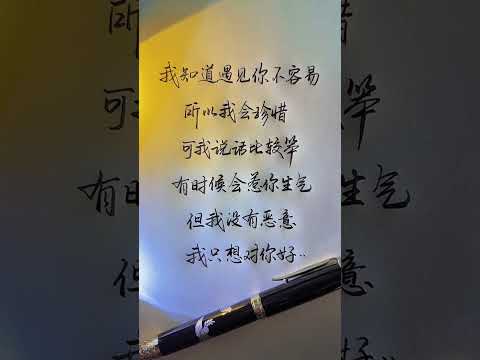 我知道遇见你不容易
所以我会珍惜
可我说话比较笨
有时候会惹你生气
但我没有恶意
我只想对你好..